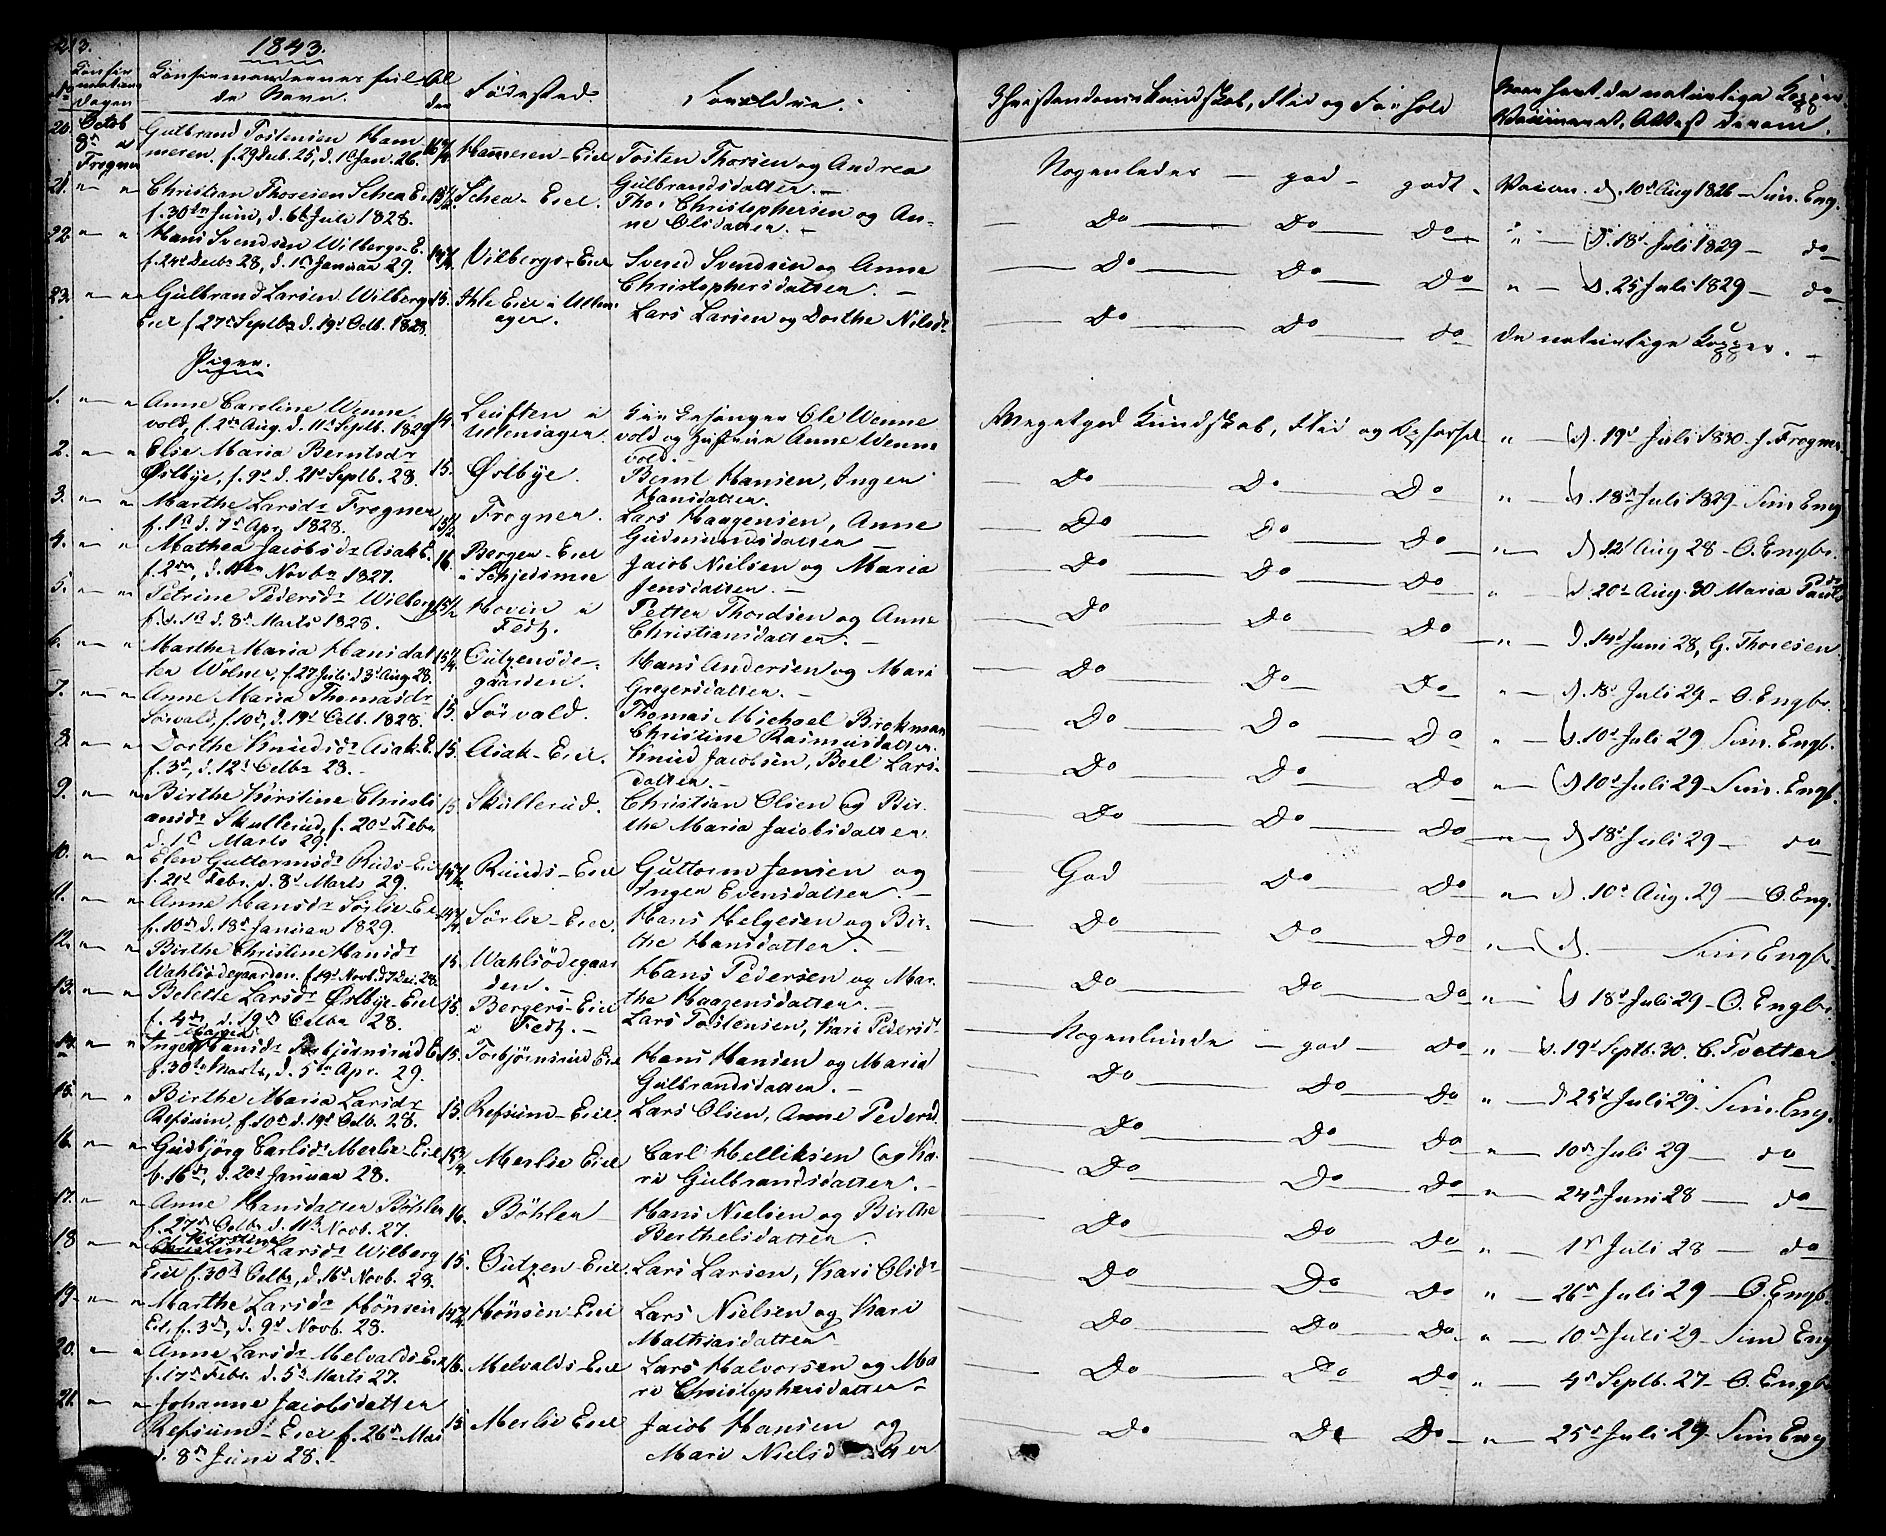 213.
1843.
Confirmations Dagen
Confirmandernes fulde Navn.
Alder
Fødested.
Forældre.
Christendoms Kundskab, Flid og Forhold
Naar havt de naturlige Kopper, Vaccineret, Attest derom.
20. Octob 8de Frogner Gulbrand Tostensen Hammeren, f. 29 Dcb. 25, d. 1 Jan. 26. Hammeren-Eier Tosten Thorsen og Andrea Gulbrandsdatter. — Nogenledes — god — godt. Vaccin. d. 10d Aug 1826 — Sim. Eng.
21. " " Christian Thoresen Schea E. f. 30te Juni, d. 6 Juli 1828. 15 1/4 Schea-Eier. Thor Christophersen og Anne Olsdatter. — Do — Do — Do " — d. 18d Juli 1829 — do
22. " " Hans Svendsen Wilbergs-E. f. 24 Decbr 28, d. 1 Januar 29. 14 3/4 Vilbergs-Eier Svend Svendsen og Anne Christophersdatter. — Do — Do — Do " — d. 25 Juli 1829 — do
23. " " Gulbrand Larsen Wilberg Eier f. 27 Septbr d. 19d Octb. 1828. 15. Ihle Eier i Ullensager. Lars Larsen og Dorthe Nilsdr Do — Do — do de naturlige Kopper. —
Piger.
1. " " Anne Caroline Wennevold, f. 2 Aug. d. 11 Septb. 1829 14. Ullensager. Kirkesanger Ole Wennevold og Hustrue Anne Wennevold. — Meget god Kundskab, Flid og Opførsel " — d. 19d Juli 1830. f. Frogner.
2. " " Elise Maria Berntsdr Østbye, f. 9d d. 21d Septb. 28. 15. Østbye. Bernt Hansen, Inger Hansdatter. Do — Do — Do " — d. 18d Juli 1829 — Sim Eng
3. " " Marthe Larsdr Frogner f. 1 d. 7d Apr. 1828. 15 1/2 Frogner. Lars Haagensen, Anne Gudmundsdatter — Do — Do — Do " — d 12d Aug 28 — O. Engbr.
4. " " Mathea Jacobsdr Asak E. f. 2, d. 11 Novbr 1827. 16. Bergen-Eier i Schjedsmoe Jacob Nielsen og Maria Jensdatter. — Do — Do — Do " d. 20d Aug. 30 Maria
5. " " Petrine Pedersdr Wilberg f. d. 1 d. 8d Marts 1828. 15 1/2 Hovin i Fedt. Petter Thordsen og Anne Christiansdatter. — Do — Do " — d. 14d Juni 28, G. Thoresen.
6. " " Marthe Maria Hansdatter Wølner, f. 27 Juli d. 3 Aug. 28. 15 1/4 ødegaarden. Hans Andersen og Mari Gregersdatter. — Do — Do — Do " — d. 18d Juli 29 — O. Engbr.
7. " " Anne Maria Thomasdr Sørvald, f. 10d, d. 19d Octb. 1828. 15. Sørvald. Thomas Michael Christine Rasmusdatter. Do — Do — Do " — d. 10d Juli 29 Sim. Engb.
8. " " Dorthe Knudsdr Asak-E. f. 3d, d. 12d Octbr 28. — 15. Asak-Eier. Knud Jacobsen, Boel Larsdatter. — Do — Do — Do " — d 10d Juli 29 — Sim. Engb.
9. " " Birthe Kirstine Christiansdr Skullerud, f. 20d Febr d. 1 Marts 29. 15 Skullerud. Christian Olsen og Birthe Maria Jacobsdatter. Do — Do — Do " — d 18d Juli 29 — do
10. " " Elen Guttormsdr Ruds-Eier f. 21d Febr. d. 8d Marts 29. Ruuds-Eier Guttorm Jensen og Inger Evensdatter. — God — Do — Do " d. 10d Aug. 29 — O. Eng.
11. " " Anne Hansdr Sørlie-Eier f. 10d, d. 18d Januar 1829. 14 3/4 Sørlie-Eier. Hans Helgesen og Birthe Hansdatter — Do — Do — Do " d. — Sim Engb.
12. " " Birthe Christine Hansdr Wahlsødegaarden. f. 19d Novb. d. 7 Dec. 28. 15. Wahlsødegaarden. — Hans Pedersen og Marthe Haagensdatter. — Do — Do — Do " d. 18d Juli 29 — O. Engbr.
13. " " Belette Larsdr Østbye-Eier f. 4d, d. 19d Octbr 28. 15. Bergers-Eier i Fedt. — Lars Tostensen, Kari Pedersdr Nogenlunde — god — Do " — d. 19d Septb. 30. C. Tvetter
14. " " Inger Hansdr Torbjørnsrud E. f. 30te Marts, d. 5 Apr. 29. 15. Torbjørnsrud Eier Hans Hansen og Maria Gulbrandsdatter. — Do — Do — Do " — d 25d Juli 29. Sim. Eng.
15. " " Birthe Maria Larsdr Refsum, f. 10d d. 19d Octb. 28. 15. Refsum-Eier. Lars Olsen, Anne Pedersd Do — Do — Do " — 10d Juli 29 — do
16. " " Gudbjørg Carlsdr Merlie-Eier f. 16d, d. 20d Januar 28. 15 3/4 Merlie Eier Carl Helliksen og Kari Gulbrandsdatter. — Do — Do — Do " — 24d Juni 28 — do
17. " " Anne Hansdatter Bøhler f. 27d Octbr d. 11 Novb. 27. 16. Bøhler Hans Nielsen og Birthe Berthelsdatter. Do — Do " — 1d Juli 28 — do
18 " " Kirstine Larsdr Wilberg Eier f. 30d Octbr, d. 16d Novb. 28. 15. -Eier. Lars Larsen, Kari Olsdr Do — Do — Do " — 26d Juli 29 — O. Engb.
19. " " Marthe Larsdr Hønsen Eier, f. 3d, d. 9d Novb. 28. 14 3/4 Hønsen-Eier Lars Nielsen og Kari Mathiasdatter Do — Do — Do. " — 10d Juli 29 — Sim Eng
20. " " Anne Larsdr Melvalds-Eier f. 17d Febr d. 5d Marts 27. 16. Melvalds-Eier Lars Halvorsen og Mari Christophersdatter — Do — Do — Do " — 4d Septb. 27 — O. Engb
21. " " Johanne Jacobsdatter Refsum-Eier f. 26d Mai d. 8d Juni 28. — 15 Merlie Eier Jacob Hansen og Mari Nielsd ter Do — Do — Do " — 25d Juli 29 — Sim Eng